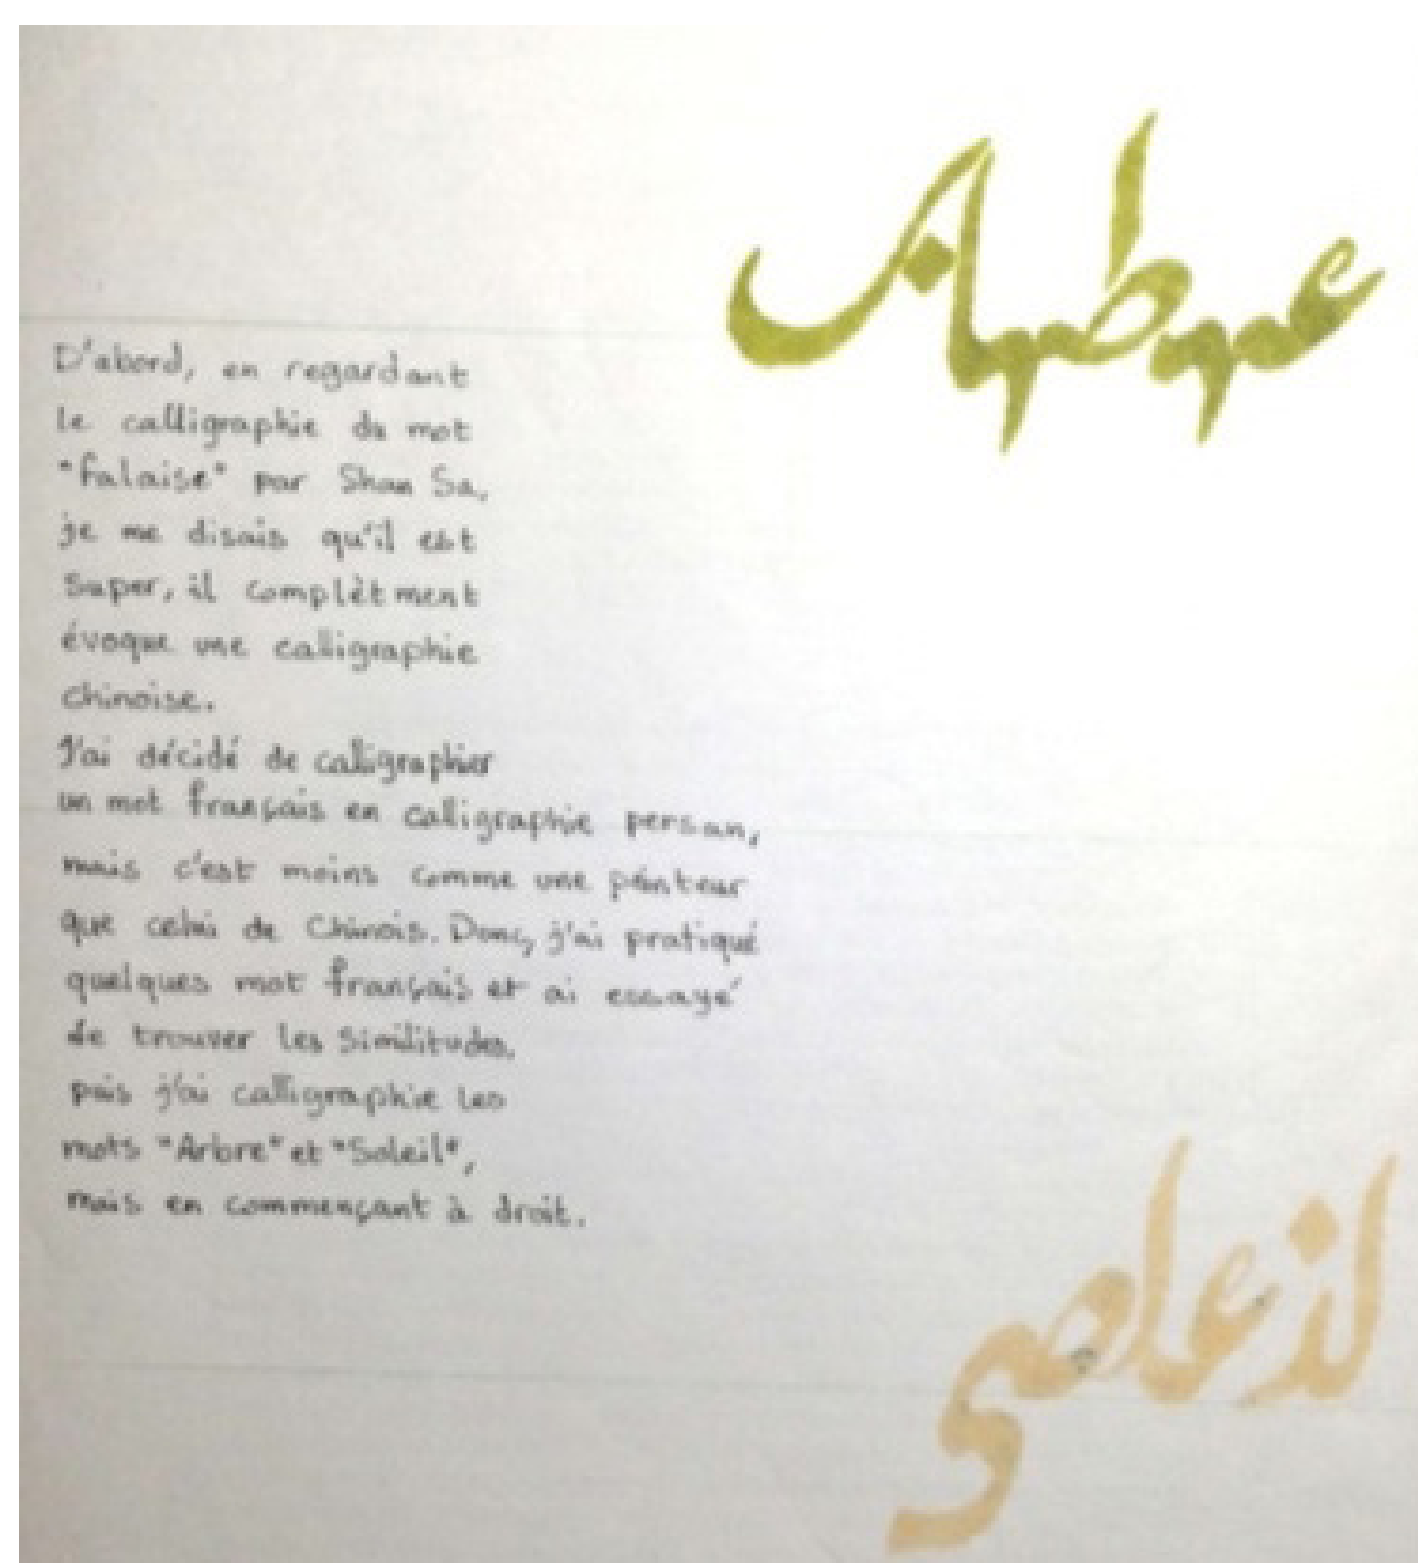 Arbre
D'abord, en regardant
le calligraphie du mot
"falaise" par Shan Sa,
je me disais qu'il est
super, il complètment
évoque une calligraphie
chinoise.
J'ai décidé de calligraphier
un mot français en calligraphie persan,
mais c'est moins comme une peinteur
que celui de Chinois. Donc, j'ai pratiqué
quelques mot français et ai essayé
de trouver les similitudes.
puis j'ai calligraphie les
mots "Arbre" et "Soleil",
mais en commençant à droit.
Soleil